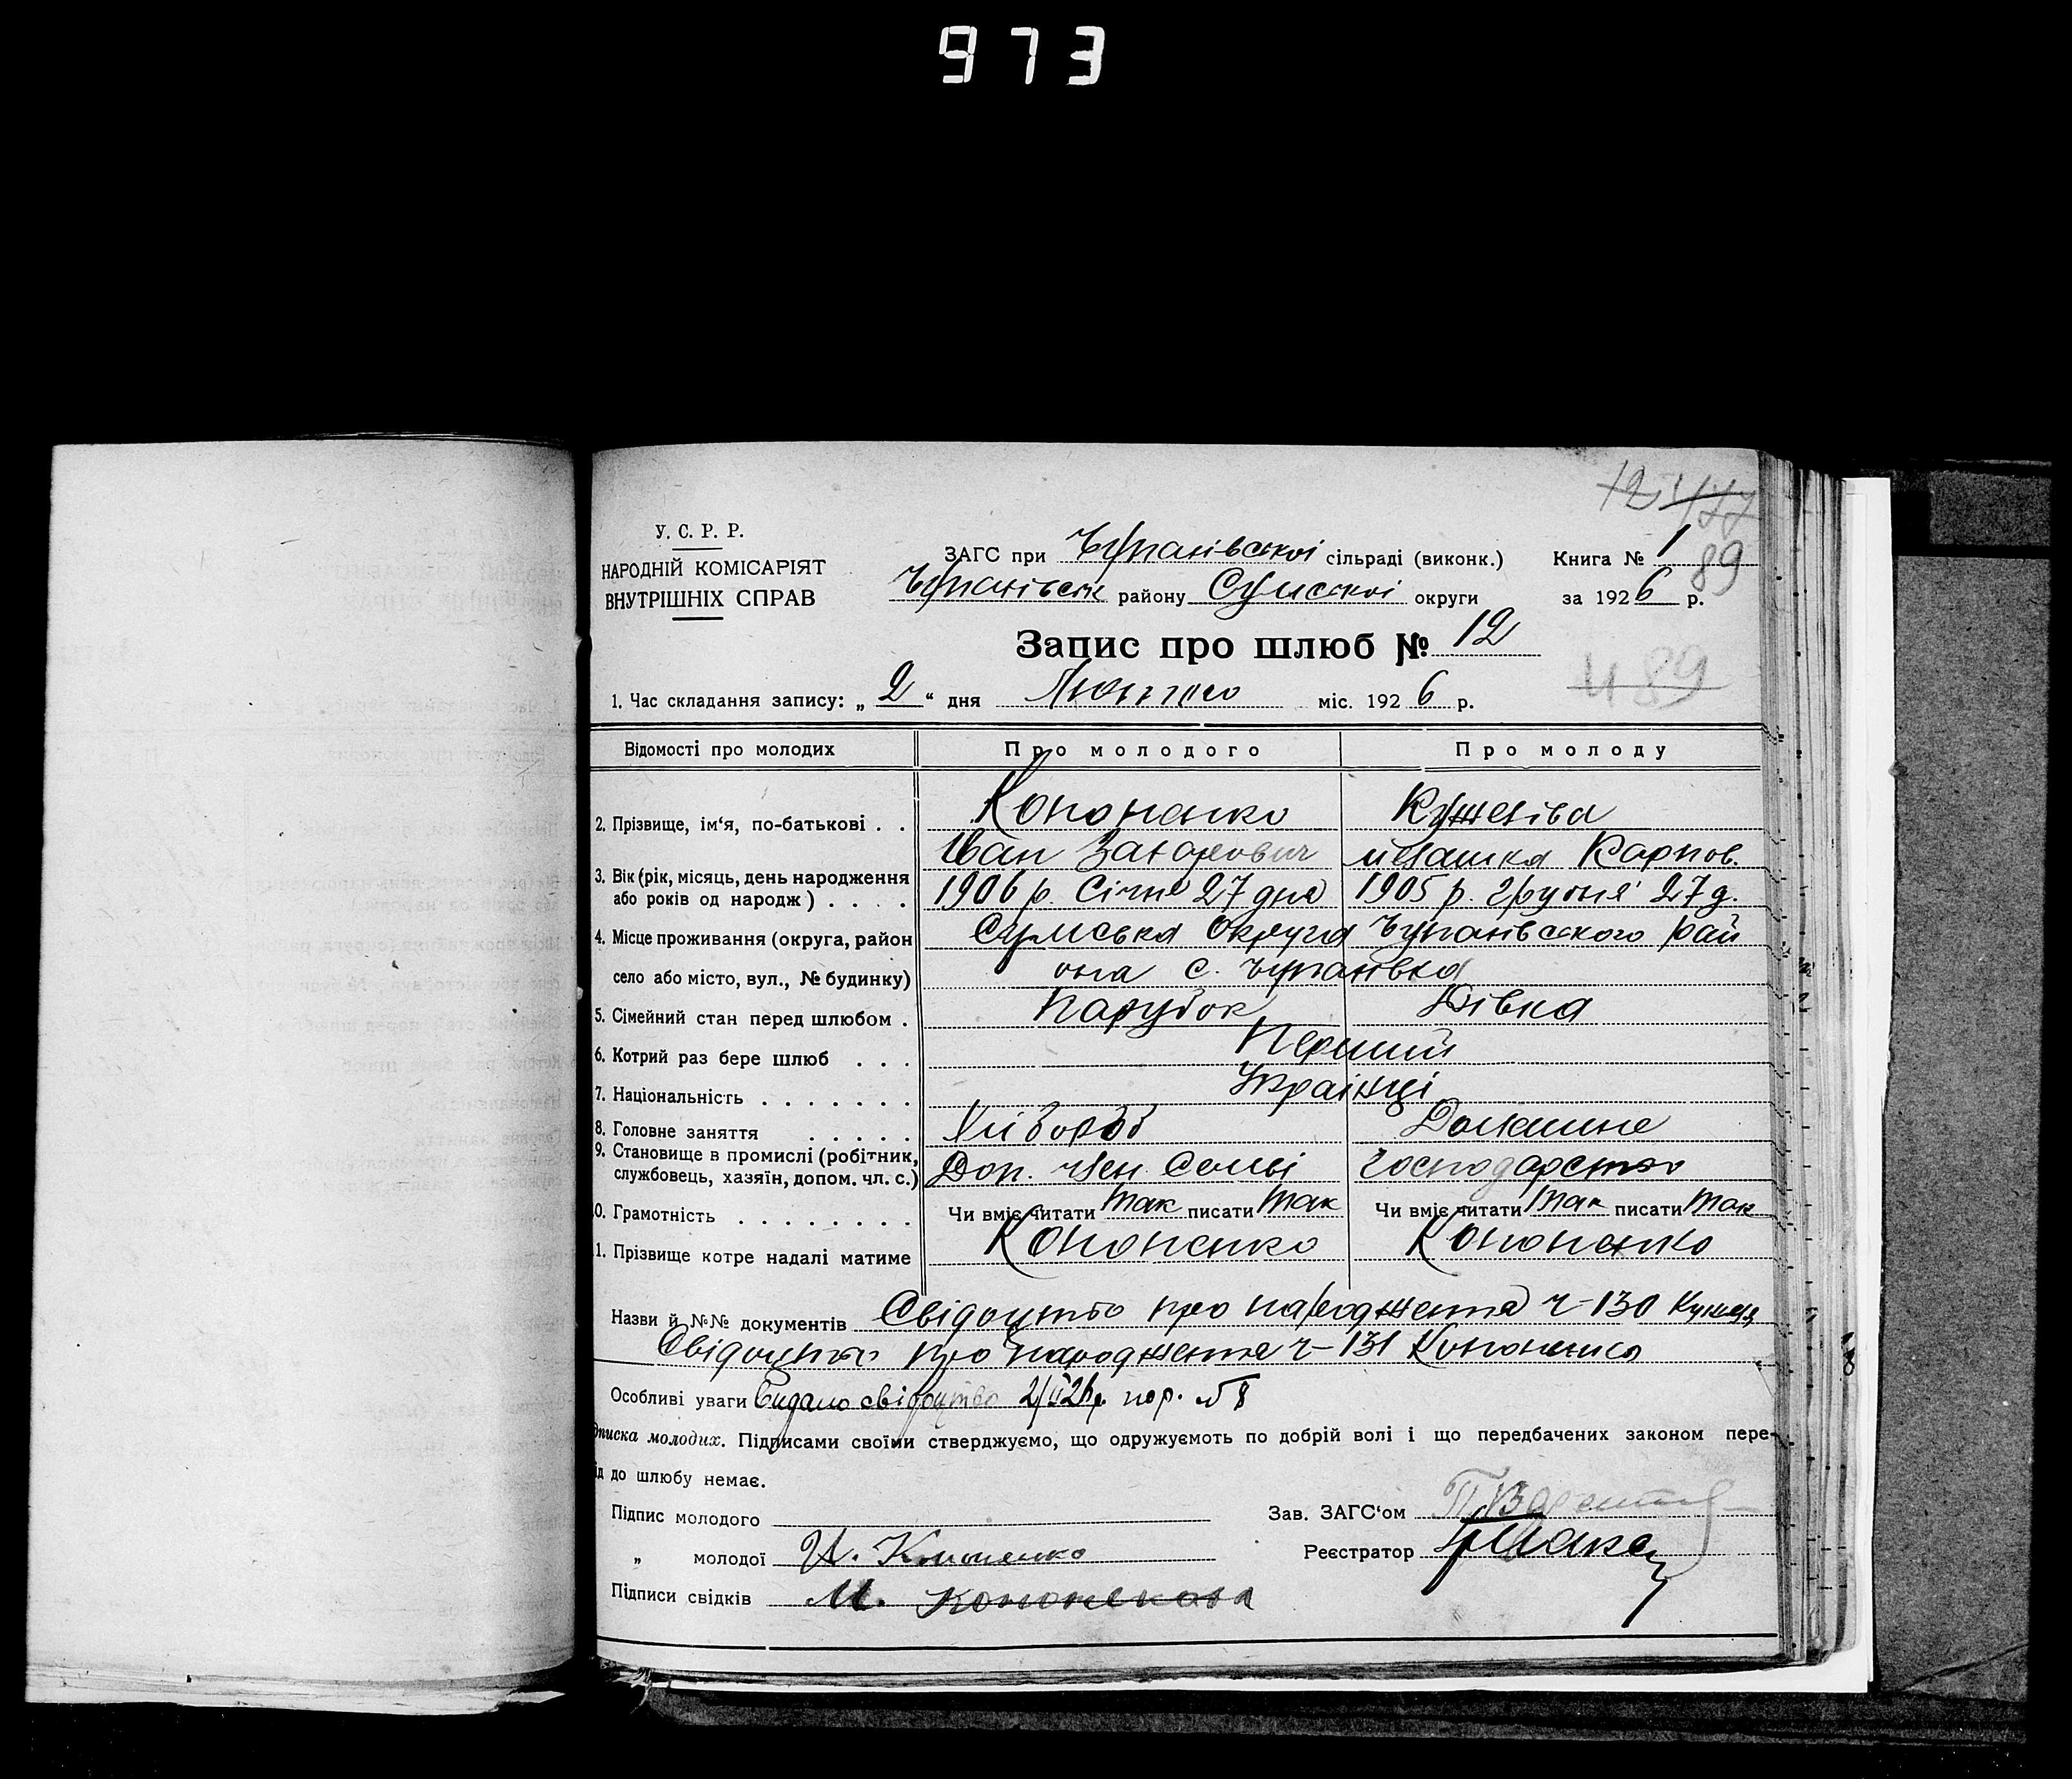 973
12 477
У. С. Р. Р.
НАРОДНІЙ КОМІСАРІЯТ
ВНУТРІШНІХ СПРАВ
ЗАГС при Чупахівської сільраді (виконк.)
Чупахівськ району Сумської округи
Книга № 1
89
за 1926 р.
Запис про шлюб № 12
489
1. Час складання запису: „2“ дня Лютого міс. 1926 р.
Відомості про молодих Про молодого Про молоду
2. Прізвище, ім‘я, по-батькові . . Кононенко
Іван Захарович Карпов.
3. Вік (рік, місяць, день народження
або років од народж) . . . . 1906 р. Січня 27 дня 1905 р. грудня 27 д.
4. Місце проживання (округа, район Сумська Округа Чупахівського рай
село або місто, вул., № будинку) она с. Чупахівка
5. Сімейний стан перед шлюбом . Парубок Дівка
6. Котрий раз бере шлюб . . . Перший
7. Національність . . . . . . . Українці
8. Головне заняття . . . . . Хлібороб Домашнє
9. Становище в промислі (робітник,
службовець, хазяїн, допом. чл. с.) Доп. член Семьі господарство
10. Грамотність . . . . . . . . Чи вміє читати так писати так Чи вміє читати так писати так
11. Прізвище котре надалі матиме Кононенко Кононенко
Назви й №№ документів Свідоцтво про народження ч-130
Свідоцтво про народження ч-131 Кононенко
Особливі уваги Видано свідоцтво 2/II 26р. пор. № 8
дписка молодих. Підписами своїми стверджуємо, що одружуємоть по добрій волі і що передбачених законом пере-
ід до шлюбу немає.
Підпис молодого
Зав. ЗАГС‘ом
„ молодої И. Кононенко
Реєстратор
Підписи свідків М. Кононенкова